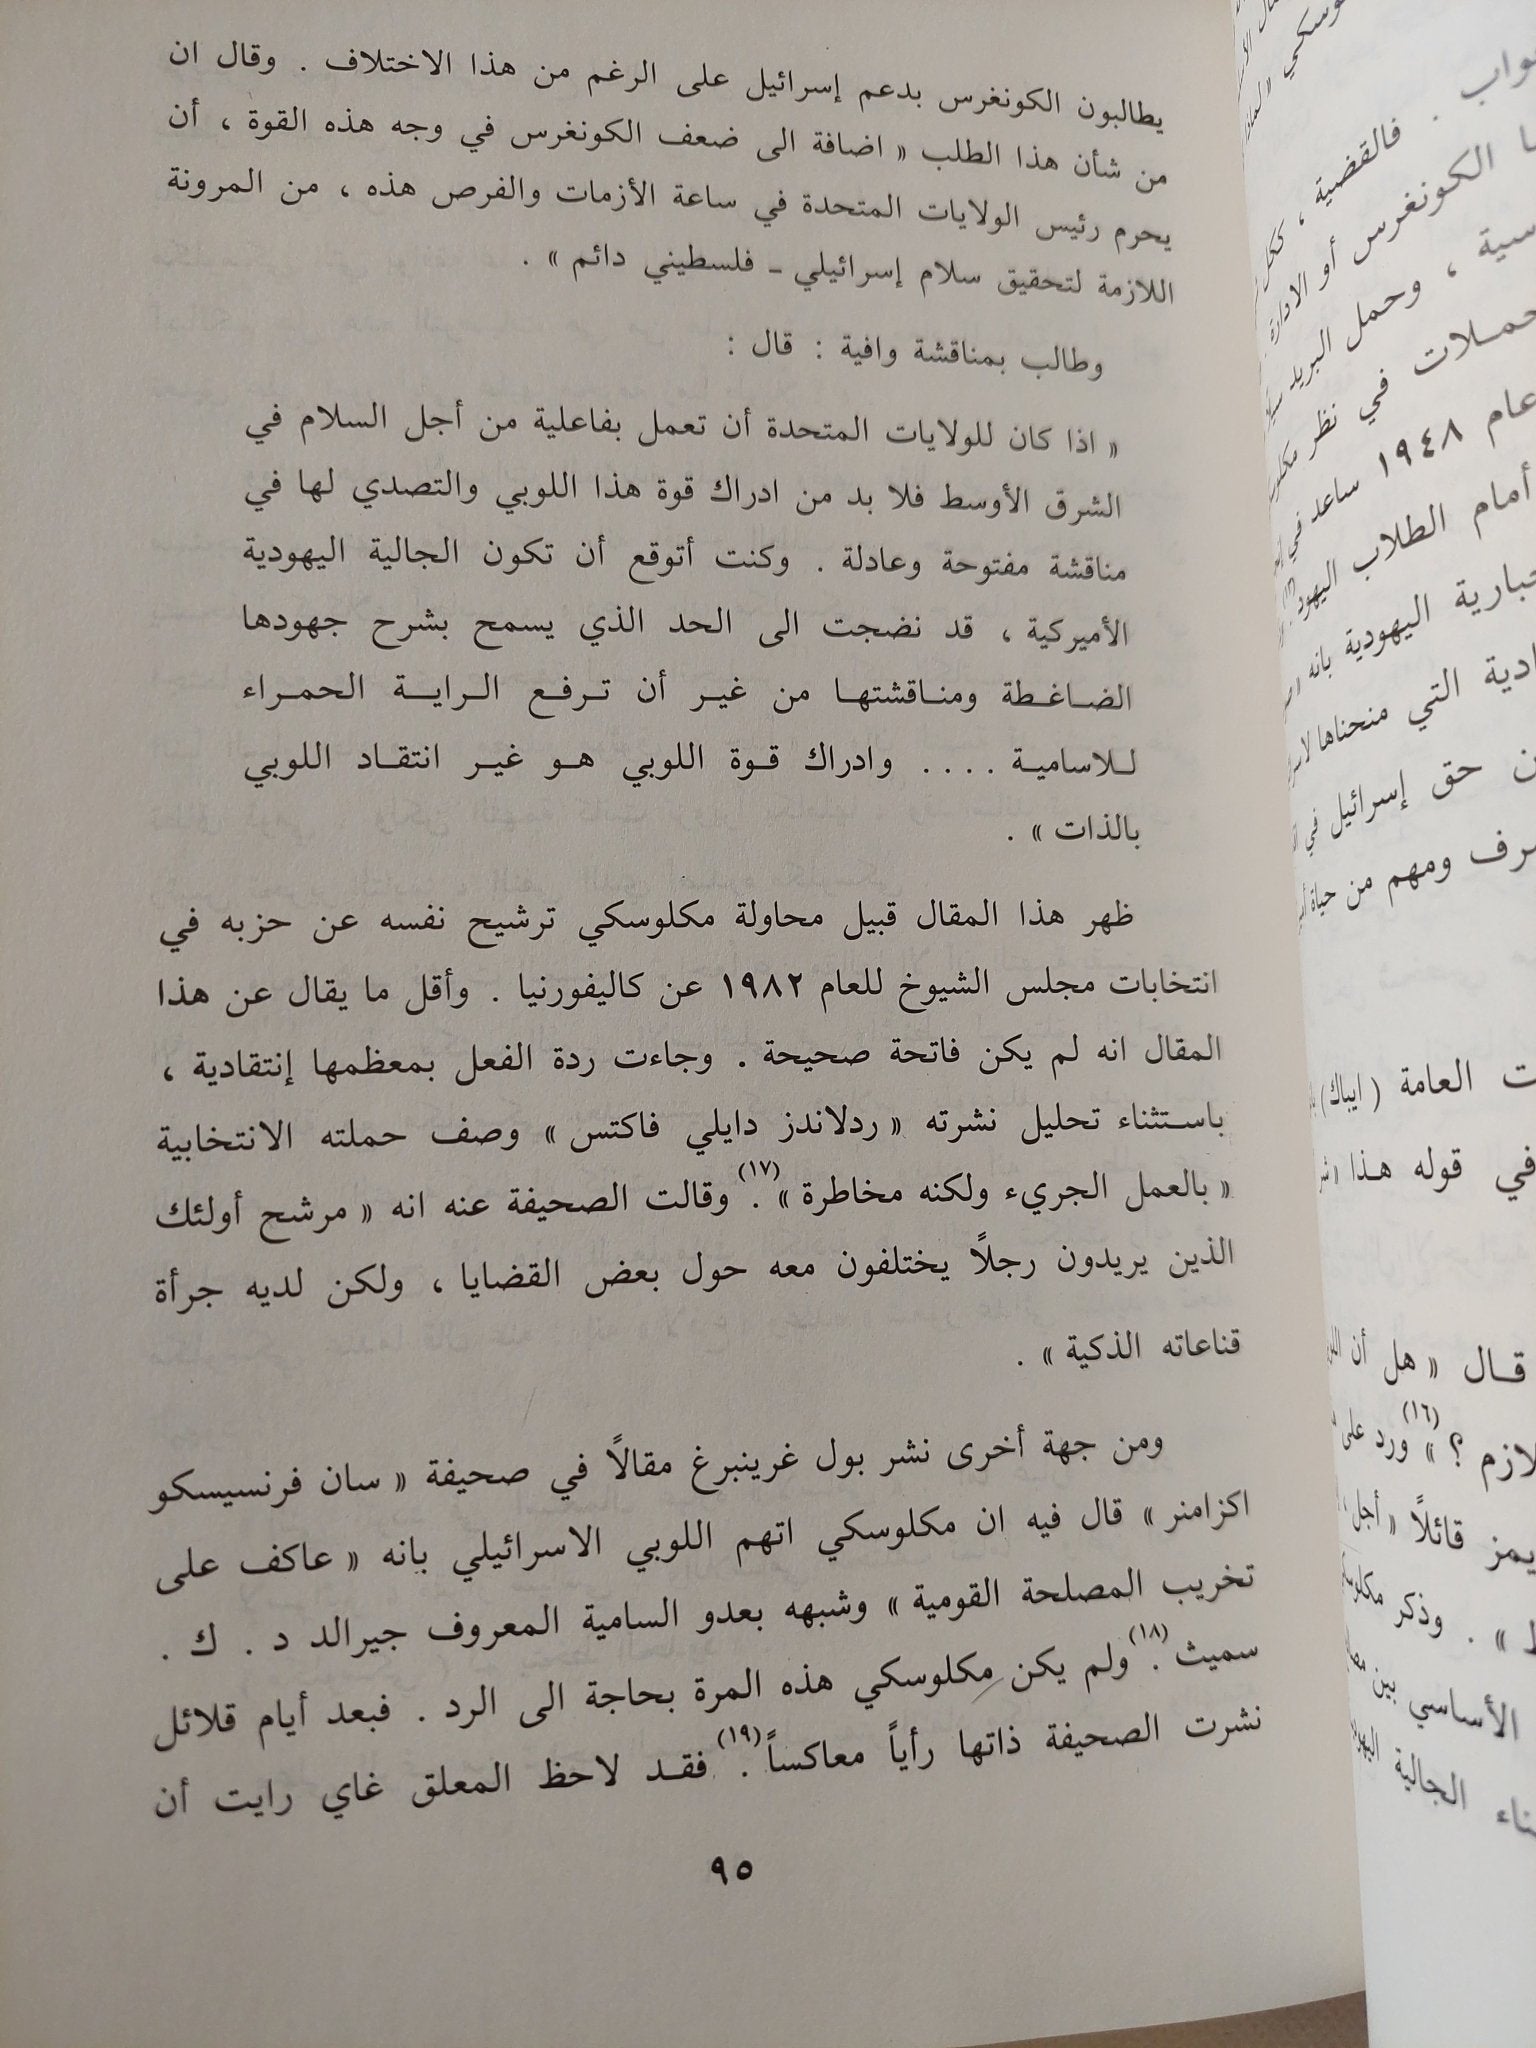 يطالبون الكونغرس بدعم إسرائيل على الرغم من هذا الاختلاف . وقال ان
من شأن هذا الطلب « اضافة الى ضعف الكونغرس في وجه هذه القوة ، أن
يحرم رئيس الولايات المتحدة في ساعة الأزمات والفرص هذه ، من المرونة
اللازمة لتحقيق سلام إسرائيلي ـ فلسطيني دائم » .
وطالب بمناقشة وافية : قال :
« اذا كان للولايات المتحدة أن تعمل بفاعلية من أجل السلام في
الشرق الأوسط فلا بد من ادراك قوة هذا اللوبي والتصدي لها في
مناقشة مفتوحة وعادلة . وكنت أتوقع أن تكون الجالية اليهودية
الأميركية ، قد نضجت الى الحد الذي يسمح بشرح جهودها
الضاغطة ومناقشتها من غير أن ترفع الراية الحمراء
للاسامية .... وادراك قوة اللوبي هو غير انتقاد اللوبي
بالذات » .
ظهر هذا المقال قبيل محاولة مكلوسكي ترشيح نفسه عن حزبه في
انتخابات مجلس الشيوخ للعام ١٩٨٢ عن كاليفورنيا . وأقل ما يقال عن هذا
المقال انه لم يكن فاتحة صحيحة . وجاءت ردة الفعل بمعظمها إنتقادية ،
باستثناء تحليل نشرته « ردلاندز دايلي فاكتس » وصف حملته الانتخابية
« بالعمل الجريء ولكنه مخاطرة »(١٧). وقالت الصحيفة عنه انه « مرشح أولئك
الذين يريدون رجلاً يختلفون معه حول بعض القضايا ، ولكن لديه جرأة
قناعاته الذكية » .
ومن جهة أخرى نشر بول غرينبرغ مقالاً في صحيفة « سان فرنسيسكو
اكزامنر » قال فيه ان مكلوسكي اتهم اللوبي الاسرائيلي بانه « عاكف على
تخريب المصلحة القومية » وشبهه بعدو السامية المعروف جيرالد د . ك .
سميث(١٨). ولم يكن مكلوسكي هذه المرة بحاجة الى الرد . فبعد أيام قلائل
نشرت الصحيفة ذاتها رأياً معاكساً(١٩). فقد لاحظ المعلق غاي رايت أن
٩٥
فالقضية ، ككل
الكونغرس أو الادارة
سية ، وحمل البريد
حملات في نظر
عام ١٩٤٨ ساعد في
أمام الطلاب اليهود
اليهودية بانه
التي منحناها
حق إسرائيل في
ومهم من حياة
العامة ( ايباك )
في قوله هذا «
قال « هل أن
لازم ؟ »(١٦) ورد على
قائلاً « أجل ،
» . وذكر
الأساسي بين
الجالية